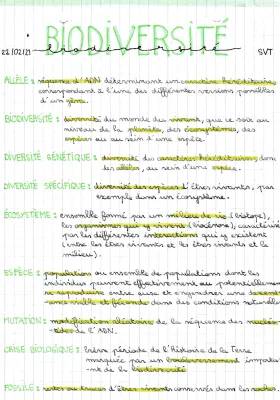 BIODIVERSITÉ
22/02/21 biodiversité SVT
ALLÈLE : séquence d'ADN déterminant un caractère héréditaire
correspondant à l'une des différentes versions possibles
d'un gène.
BIODIVERSITÉ : diversité du monde du vivant, que ce soit au
niveau de la planète, des écosystèmes, des
espèces ou au sein d'une espèce.
DIVERSITÉ GÉNÉTIQUE : diversité des caractères héréditaires dans
des allèles, au sein d'une espèce.
DIVERSITÉ SPÉCIFIQUE : diversité des espèces d'êtres vivants, par
exemple dans un écosystème.
ÉCOSYSTÈME : ensemble formé par un milieu de vie (biotope),
les organismes qui y vivent (biocénose), caractérisé
par les différentes interactions qui y existent
(entre les êtres vivants et les êtres vivants et le
milieu).
ESPÈCE : population ou ensemble de populations dont les
individus peuvent effectivement ou potentiellement
se reproduire entre eux et engendrer une descendan-
-ce viable et féconde dans des conditions naturelles
MUTATION : modification aléatoire de la séquence des nucléo-
-tides de l'ADN.
CRISE BIOLOGIQUE : brève période de l'Histoire de la Terre
marquée par un bouleversement importa-
-nt de la biodiversité
FOSSILE : restes ou traces d'êtres vivants conservés dans les roches